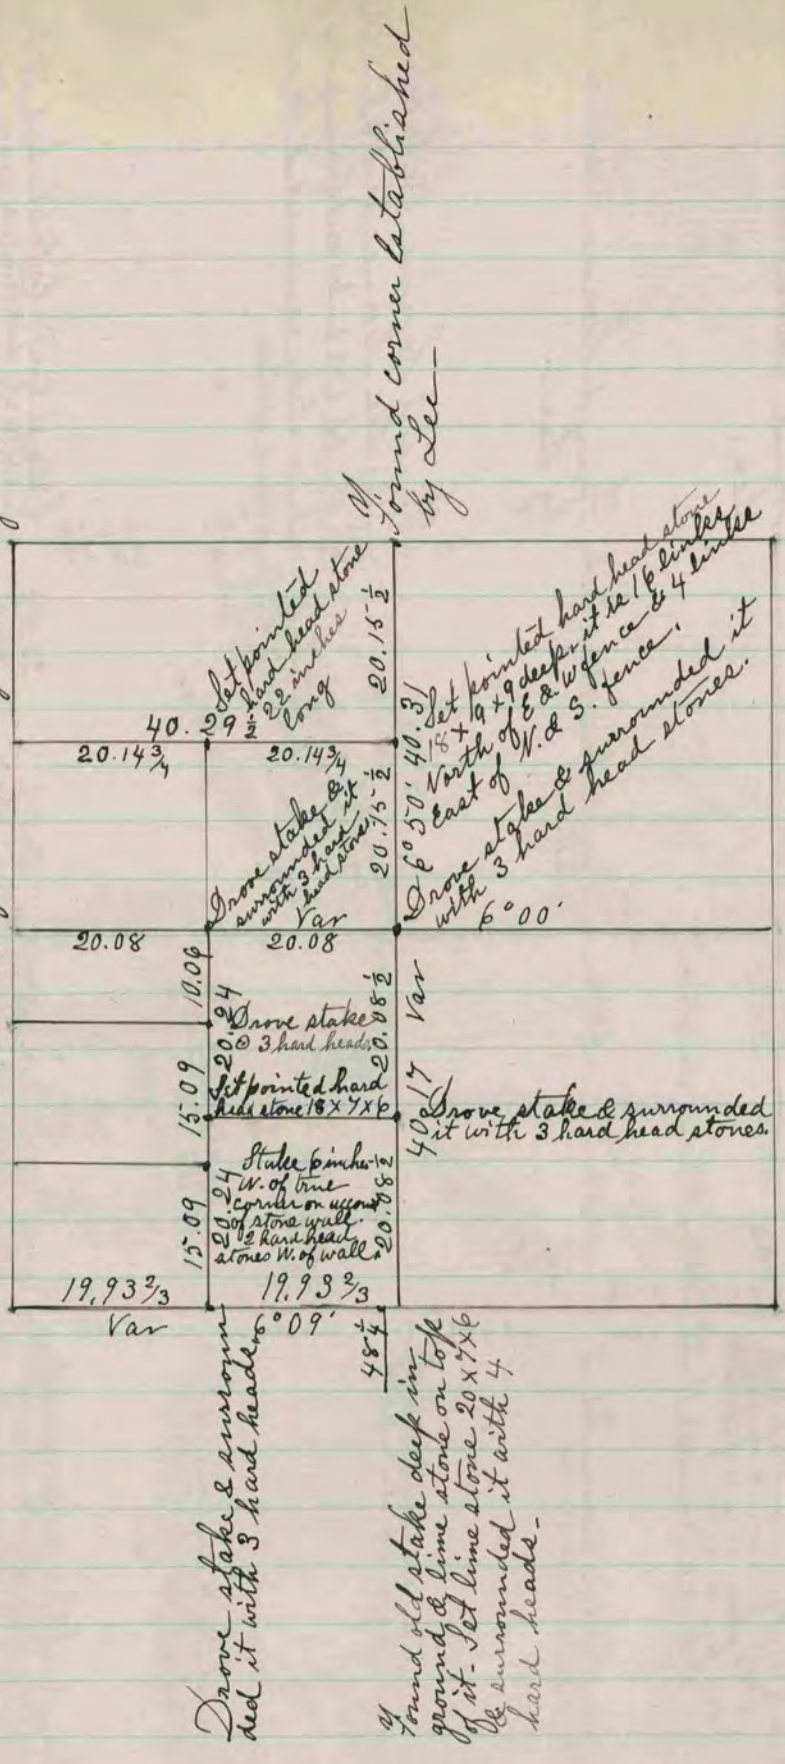 Found corner established
by Lee
Set pointed
hard head stone
22 inches
long
40.29 1/2
20.14 3/4
20.14 3/4
20.15 1/2
20.15 1/2
Set pointed hard head stone
18 x 9 x 9 deep. it is 16 links
North of E & W fence & 4 links
East of N. & S. fence.
6° 50' 40.31
Drove stake &
surrounded it
with 3 hard
head stones
Var
Drove stake & surrounded it
with 3 hard head stones.
6° 00'
20.08
20.08
10.06
20.24
20.08 1/2
Var
Drove stake
@ 3 hard heads
15.09
Set pointed hard
head stone 18 x 7 x 6
40.17
Drove stake & surrounded
it with 3 hard head stones.
Stake 6 inches
W. of true
corner on account
of stone wall.
2 hard head
stones W. of wall.
15.09
20.24
20.08 1/2
19.93 2/3
19.93 2/3
Var
6° 09'
48 1/4
Drove stake & surroun
ded it with 3 hard heads
Found old stake deep in
ground & lime stone on top
of it - Set lime stone 20 x 7 x 6
& surrounded it with 4
hard heads -